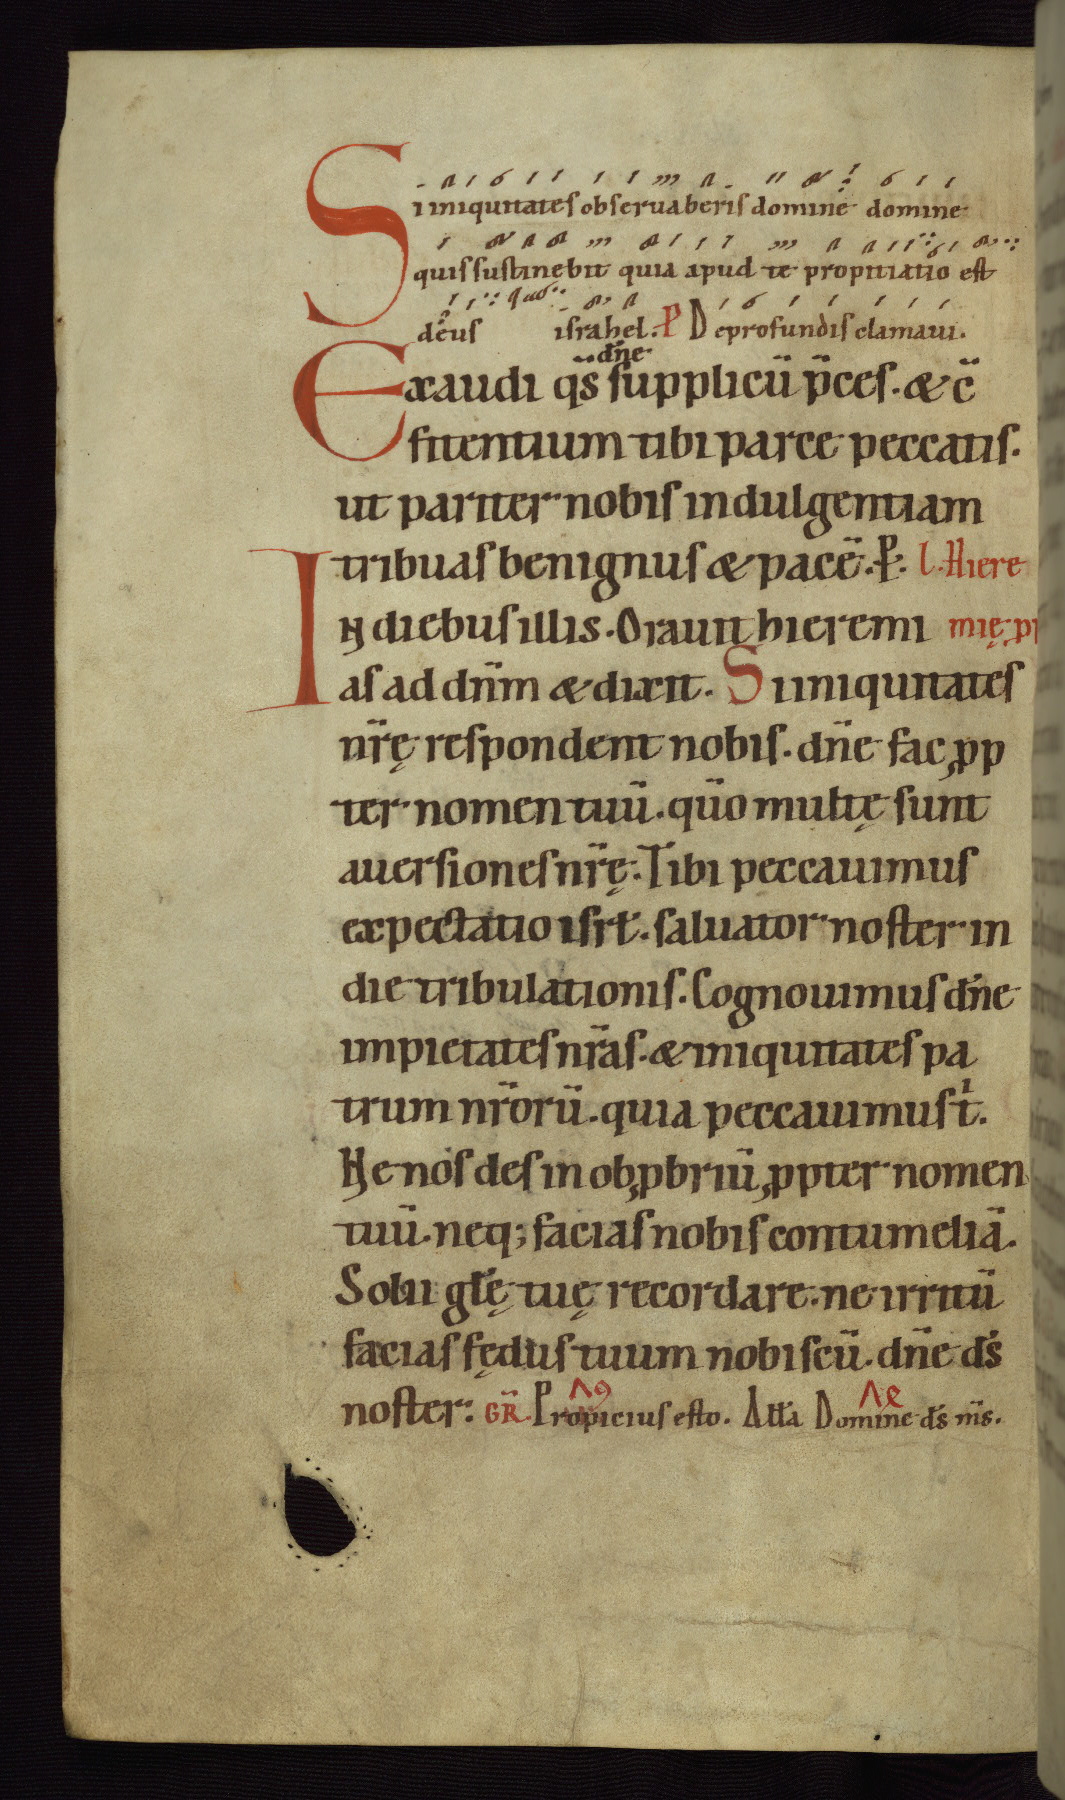 Si iniquitates obseruaberis domine domine
quis sustinebit quia apud te propitiatio est
deus israhel. P Deprofundis clamaui.
dn̄e
Exaudi qs̄ supplicū p̄ces. & c̄
fitentium tibi parce peccatis.
ut pariter nobis indulgentiam
tribuas benignus & pacē. P. l. Hiere
In diebus illis. Orauit hieremi mię. pr
as ad dn̄m & dixit. Si iniquitates
nr̄ę respondent nobis. dn̄e fac ꝓp
ter nomen tuū. qūo multę sunt
auersiones nr̄ę. Tibi peccauimus
expectatio isrł. saluator noster in
die tribulationis. Cognouimus dn̄e
impietates nr̄as. & iniquitates pa
trum nr̄orū. quia peccauimus t̄.
Ne nos des in obꝓbriū ꝓpter nomen
tuū. neq; facias nobis contumeliā.
Solii głę tuę recordare. ne irritū
facias fędus tuum nobiscū. dn̄e ds̄
noster. GR̄. Propicius esto. Ałła Domine ds̄ ms̄.